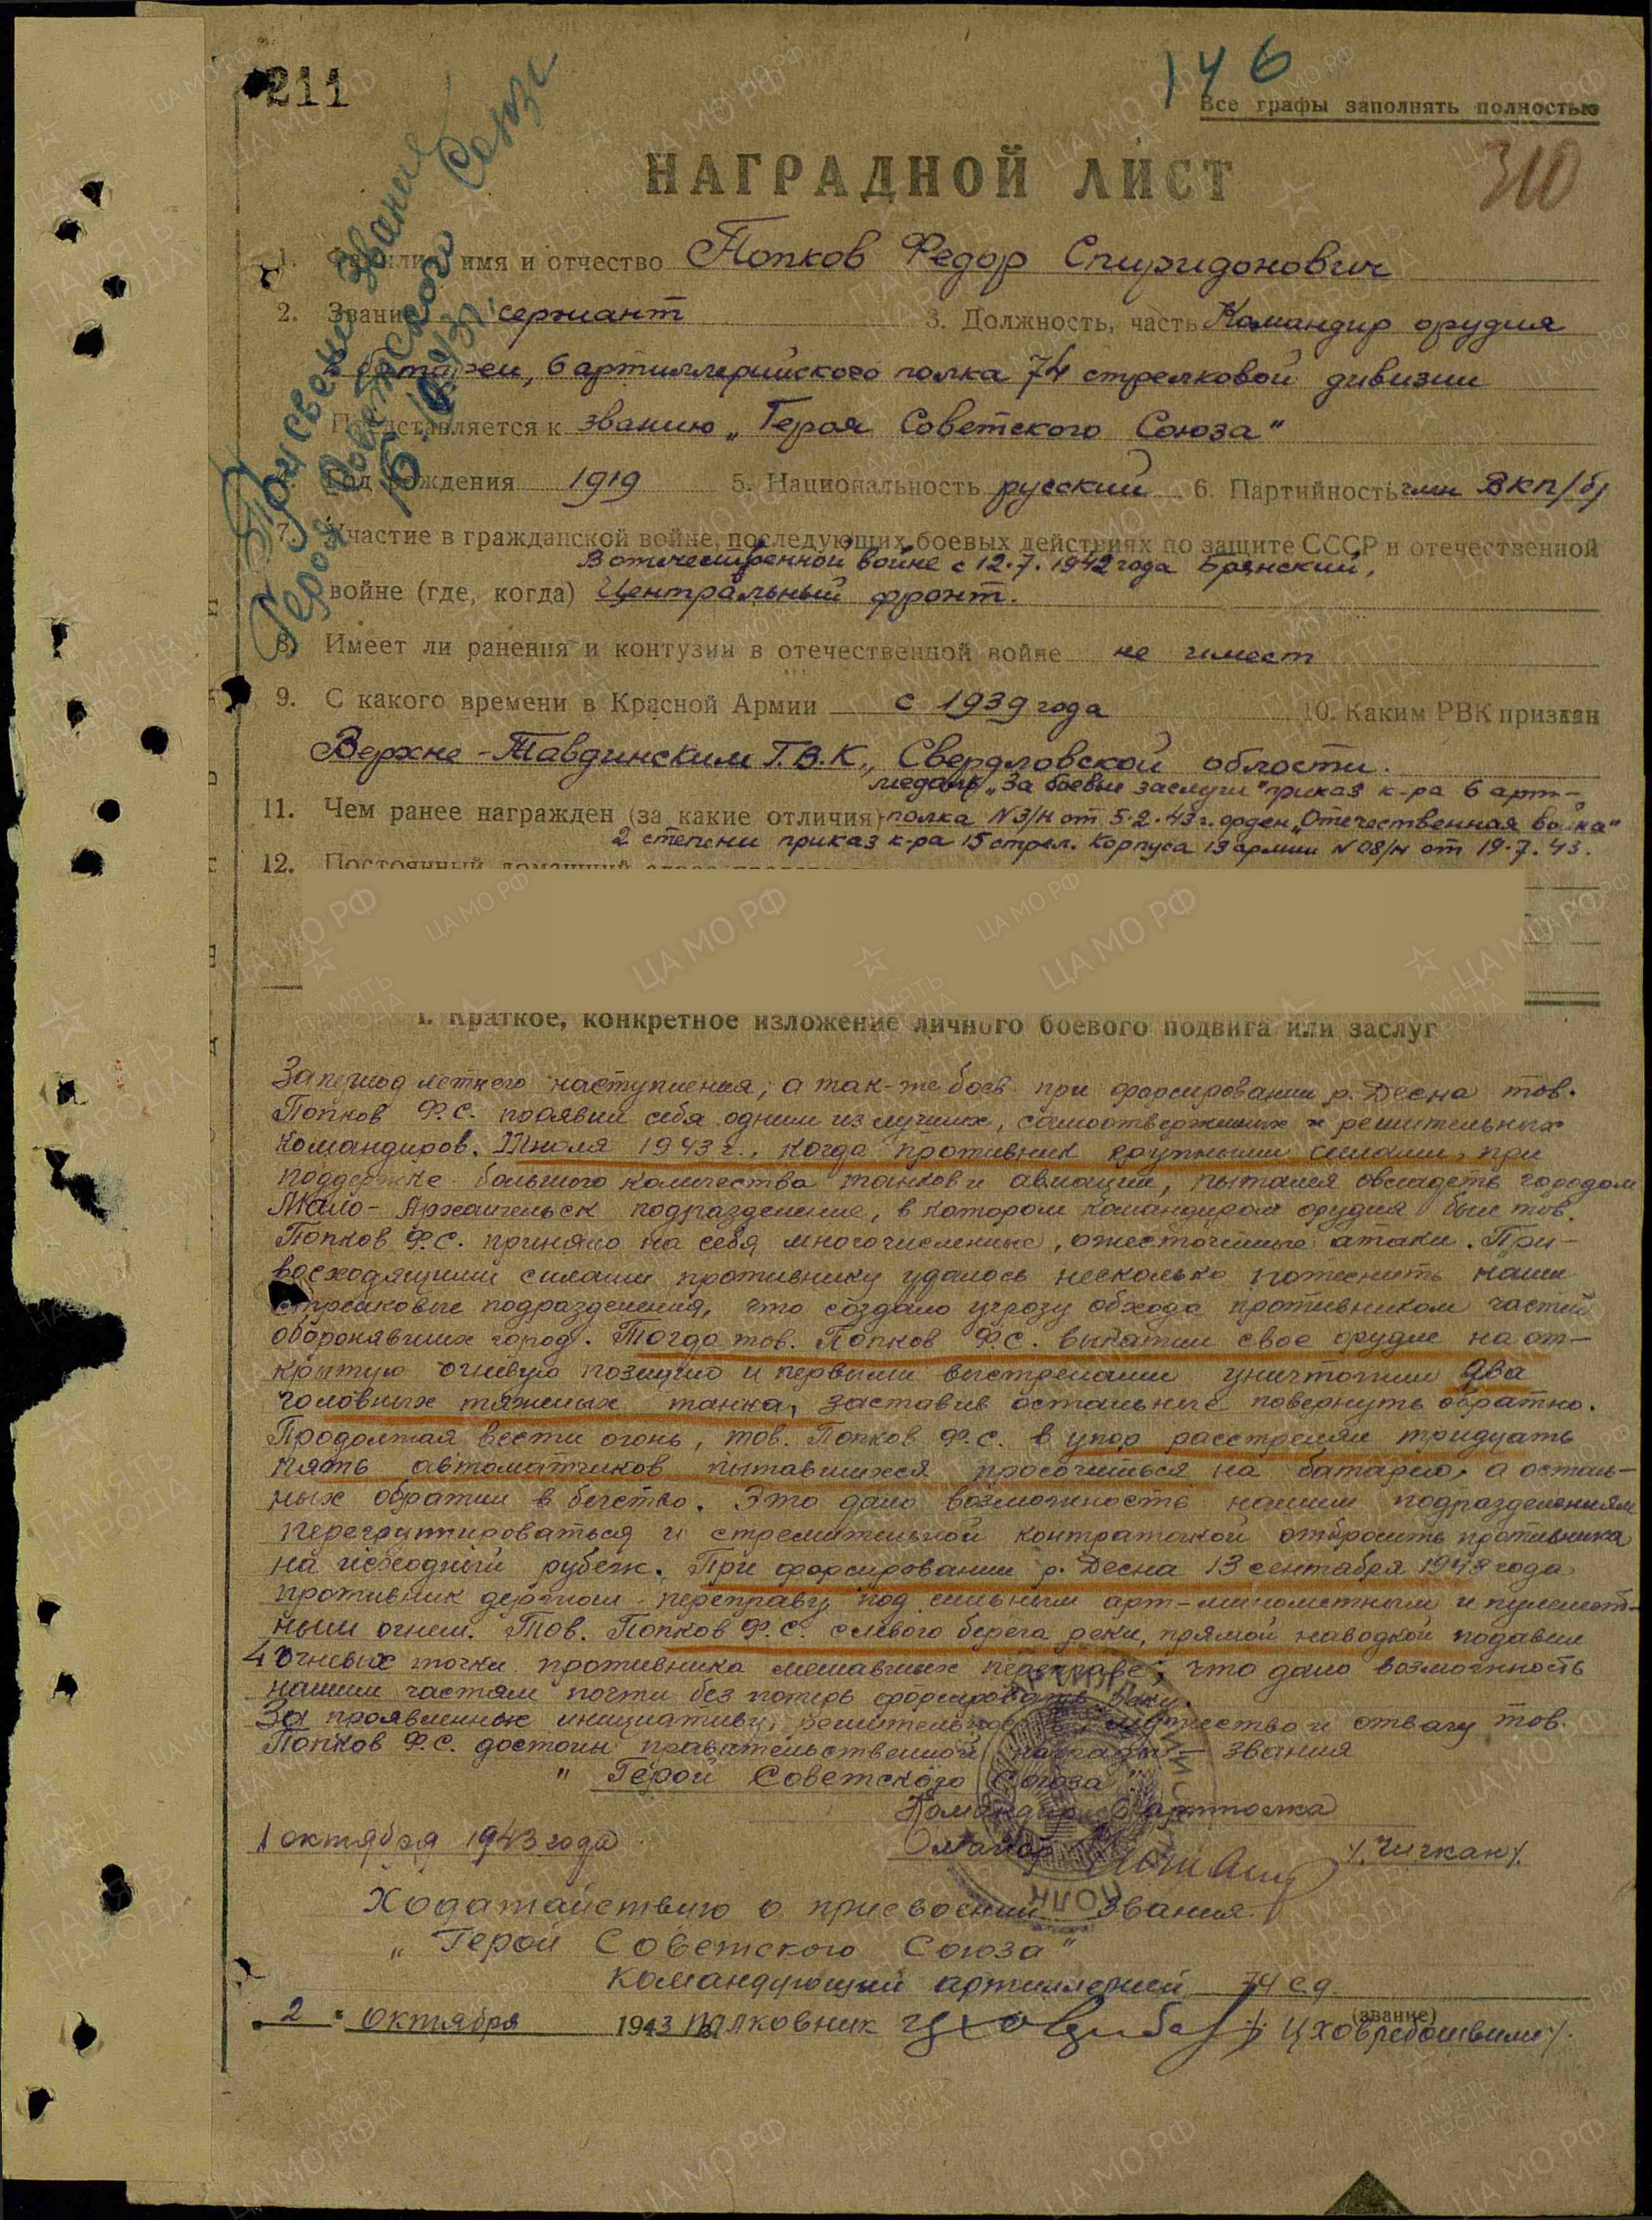 211
146
Все графы заполнять полностью
310
НАГРАДНОЙ ЛИСТ
Присвоено звание
Героя Советского Союза
1. Фамилия, имя и отчество Попков Федор Спиридонович
2. Звание сержант 3. Должность, часть Командир орудия
батареи, 6 артиллерийского полка 74 стрелковой дивизии
Представляется к званию „Героя Советского Союза"
Год рождения 1919 5. Национальность русский 6. Партийность член ВКП/б/
7. Участие в гражданской войне, последующих боевых действиях по защите СССР и отечественной
В отечественной войне с 12.7.1942 года Брянский,
войне (где, когда) Центральный фронт.
8. Имеет ли ранения и контузии в отечественной войне не имеет
9. С какого времени в Красной Армии с 1939 года 10. Каким РВК призван
Верхне-Тавдинским Г.В.К., Свердловской области.
медаль „За боевые заслуги" приказ к-ра 6 арт-
11. Чем ранее награжден (за какие отличия) полка N3/н от 5.2.43г. орден „Отечественная война"
2 степени приказ к-ра 15 стрел. Корпуса 13 армии N08/н от 19.7.43.
12. Постоянный домашний адрес
I. Краткое, конкретное изложение личного боевого подвига или заслуг
За период летнего наступления, а так-же боев при форсировании р. Десна тов.
Попков Ф.С. проявил себя одним из лучших, самоотверженных и решительных
командиров. Июля 1943 г., когда противник крупными силами, при
поддержке большого количества танков и авиации, пытался овладеть городом
Мало-Архангельск подразделение, в котором командиром орудия был тов.
Попков Ф.С. приняло на себя многочисленные, ожесточенные атаки. При-
восходящими силами противнику удалось несколько потеснить наши
стрелковые подразделения, что создало угрозу обхода противником частей
оборонявших город. Тогда тов. Попков Ф.С. выкатил свое орудие на от-
крытую огневую позицию и первыми выстрелами уничтожил два
головных тяжелых танка, заставив остальные повернуть обратно.
Продолжая вести огонь, тов. Попков Ф.С. в упор расстрелял тридцать
пять автоматчиков пытавшихся просочиться на батарею, а осталь-
ных обратил в бегство. Это дало возможность нашим подразделениям
перегруппироваться и стремительной контратакой отбросить противника
на исходный рубеж. При форсировании р. Десна 13 сентября 1943 года
противник держал переправу под сильным арт-минометным и пулемет-
ным огнем. Тов. Попков Ф.С. с левого берега реки, прямой наводкой подавил
4 огневых точки противника мешавших переправе, что дало возможность
нашим частям почти без потерь форсировать реку.
За проявленные инициативу, решительность, мужество и отвагу тов.
Попков Ф.С. достоин правительственной награды – звания
„Герой Советского Союза".
Командир 6 артполка
1 октября 1943 года майор /Чичкан/.
Ходатайствую о присвоении звания
„Герой Советского Союза"
командующий артиллерией 74 сд
(звание)
„2" октября 1943 полковник /Цховребашвили/.